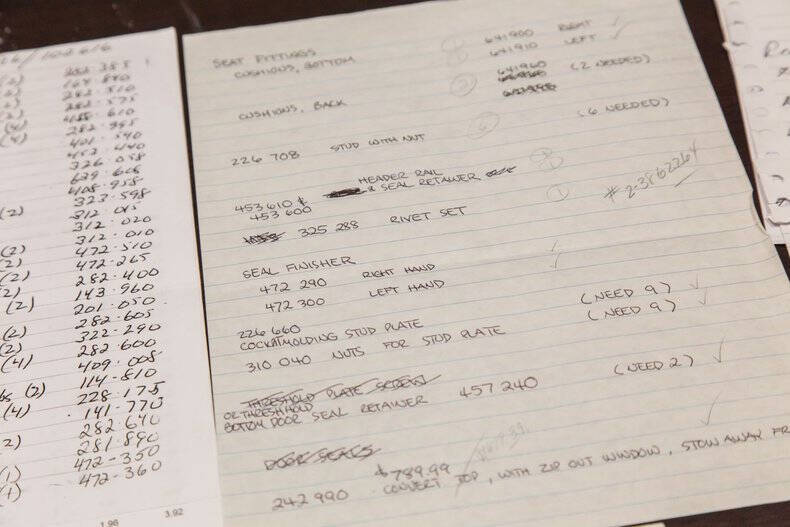 282.385
(2) 282.510
401.540
452.440
326.058
629.608
408.958
323.598
(2) 312.015
312.020
312.010
(2) 472.510
(2) 472.265
(2) 282.400
(2) 143.960
(2) 201.050
282.605
(2) 322.290
(2) 282.600
(4) 409.008
114-810
(2) 228.175
(4) 141.770
282.640
2) 281.890
(1) 472-350
(1) 472-360
1.98 3.92
SEAT FITTINGS
CUSHIONS, BOTTOM
641900 RIGHT
641910 LEFT
641960 (2 NEEDED)
CUSHIONS, BACK
(6 NEEDED)
226 708 STUD WITH NUT
HEADER RAIL
453 610 & & SEAL RETAINER
453 600
# 2-3862264
325 288 RIVET SET
SEAL FINISHER
472 290 RIGHT HAND
472 300 LEFT HAND
226 660 (NEED 9)
COCKATMOLDING STUD PLATE (NEED 9)
310 040 NUTS FOR STUD PLATE
THRESHOLD PLATE SCREW (NEED 2)
OR THRESHOLD
BOTTOM DOOR SEAL RETAINER 457 240
DOOR SEALS
$789.99
242 990 CONVERT TOP, WITH ZIP OUT WINDOW, STOW AWAY FR